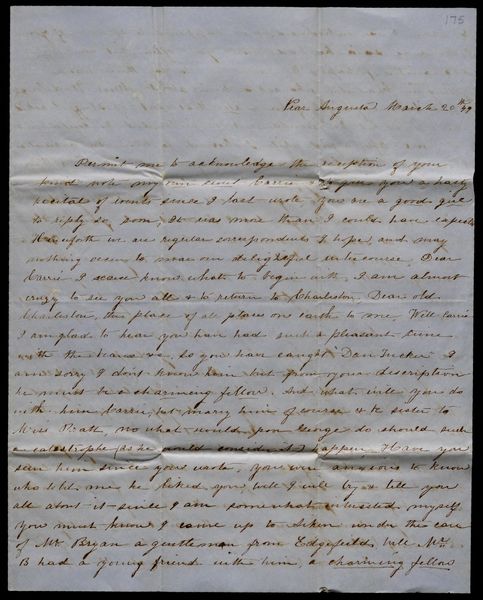 175
Near Augusta March 20th 49
Permit me to acknowledge the reception of your
kind note my own sweet Carrie & to give you a hasty
recital of events since I last wrote you are a good girl
to reply so soon, It was more than I could have expected
Henceforth we are regular correspondents I hope, and may
nothing occur to mar our delightful intercourse. Dear
Carrie I scarce know what to begin with, I am almost
crazy to see you all & to return to Charleston, Dear old
Charleston, the place of all places on earth to me. Well Carrie
I am glad to hear you have had such a pleasant time
with the beaux so you have caught Dan Tucker I
am sorry I don't know him but from your description
he must be a charming fellow. And what will you do
with him Carrie, but marry him of course & be sister to
Miss Pratt, no what would poor George do should such
a catastrophe (as he would consider it) happen. Have you
seen him since you wrote, you were anxious to know
who told me he liked you, well I will try & tell you
all about it since I am somewhat interested myself
You must know I came up to Aiken under the care
of Mr Bryan a gentleman from Edgefield, well Mr
B had a young friend with him, a charming fellow